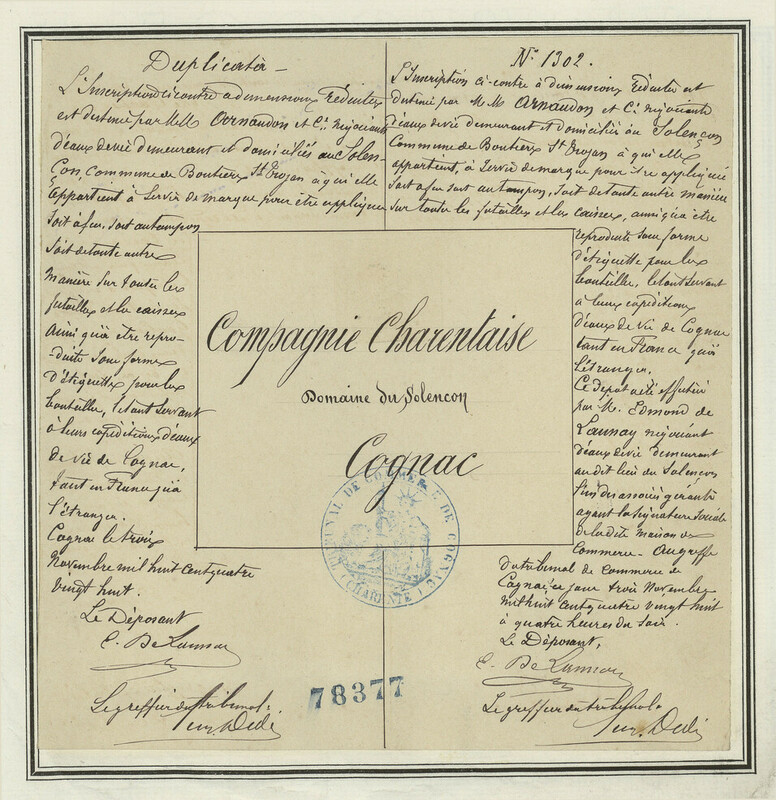 Duplicata
L'Inscription ci contre a dimensions réduites
est destiné par M.M. Arnaudon et Cie négociants
d'eaux de vie demeurant et domiciliés au Solen-
çon, commune de Boutiers St Trojan à qui elle
appartient à servir de marque pour être appliquée
soit à feu, soit au tampon
soit de toute autre
manière sur toutes les
futailles et les caisses
ainsi qu'à être repro-
duite sous forme
d'étiquettes pour les
bouteilles, le tout servant
à leurs expéditions d'eaux
de vie de Cognac,
tant en France qu'à
l'étranger.
Cognac le trois
Novembre mil huit cent quatre
vingt huit.
Le Déposant
E. De Launay
Le greffier du tribunal
N° 1302.
L'Inscription ci-contre à dimensions réduites est
destiné par M.M. Arnaudon et Cie négociants
d'eaux de vie demeurant et domiciliés au Solençon
Commune de Boutiers St Trojan à qui elle
appartient, à servir de marque pour être appliquée
soit à feu soit au tampon, soit de toute autre manière
sur toutes les futailles et les caisses, ainsi qu'à être
reproduite sous forme
d'étiquette pour les
bouteilles, le tout servant
à leurs expéditions
d'eaux de vie de Cognac
tant en France qu'à
l'étranger.
Ce dépot a été effectué
par M. Edmond de
Launay négociant
d'eaux de vie demeurant
au dit lieu du Solençon
l'un des associés gérants
ayant la signature sociale
de la dite maison de
Commerce - Au greffe
du tribunal de commerce de
Cognac, ce jour trois Novembre
mil huit cent quatre vingt huit
à quatre heures du soir.
Le Déposant,
E. De Launay
Le greffier du tribunal
Compagnie Charentaise
Domaine du Solencon
Cognac
TRIBUNAL DE COMMERCE DE COGNAC
(CHARENTE)
78377